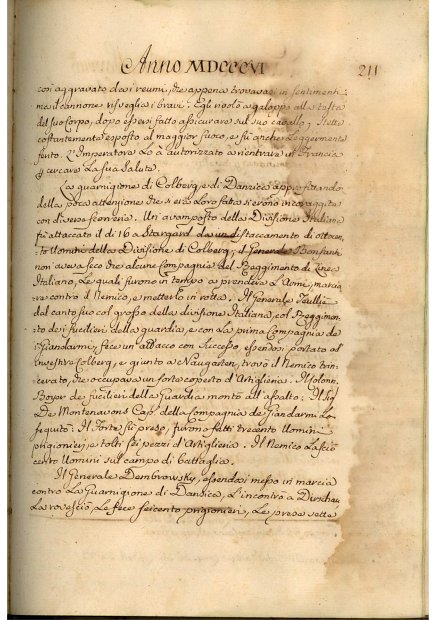 Anno MDCCCVI 211
così aggravato da i reumi, che appena trovavasi in sentimenti
ma il cannone risveglia i bravi. Egli volò a galoppo alla testa
del suo Corpo, dopo essersi fatto assicurare sul suo cavallo; stette
costantemente esposto al maggior fuoco, e fù anche leggermente
ferito. L'Imperatore lo à autorizzato a rientrare in Francia
a curare la sua Salute.
La guarnigione di Colberg, e di Danzica approfittando
della poca attenzione che si era loro fatta si erano incoraggite
con diverse scorrerie. Un avamposto della Divisione Italiana
fù attaccato il dì 16 a Stargard da un distaccamento di
Uomini della Divisione di Colberg; il Generale Bonfanti
non aveva seco che alcune Compagnie del Reggimento di Linea
Italiano, le quali furono in tempo a prendere l'Armi, marcia-
re contro il Nemico, e metterlo in rotta. Il Generale Teullie
dal canto suo col grosso della divisione Italiana, col Reggimen-
to dei fucilieri della guardia, e con la prima Compagnia de
i Giandarmi, fece un attacco con successo, essendosi portato ad
investire Colberg, e giunto a Naugarten, trovò il Nemico trin-
cerato, che occupava un forte coperto d'Artiglieria. Il Colonn.
Boyer de fucilieri della Guardia montò all'assalto; Il Sig.
De Montenavons Cap. della Compagnia de Giandarmi lo
seguitò. Il forte fù preso, furono fatti trecento Uomini
prigionieri, e tolti sei pezzi d'Artiglieria. Il Nemico lasciò
cento Uomini sul campo di battaglia.
Il Generale Dembrowsky, essendosi messo in marcia
contro la Guarnigione di Danzica, l'incontrò a Dirschau
la rovesciò, le fece seicento prigionieri, le prese sette